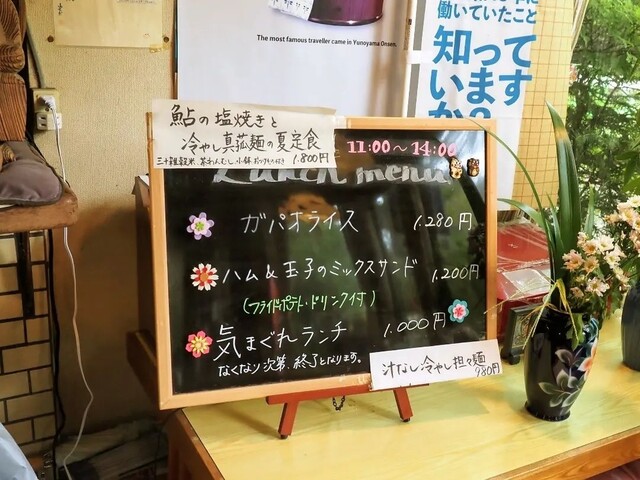 The most famous traveller came in Yunoyama Onsen.
働いていたこと
知って
いますか?
鮎の塩焼きと
冷やし真菰麺の夏定食
1.800円
11:00～14:00
Lunch menu
ガパオライス 1.280円
ハム&玉子のミックスサンド 1.200円
(フライドポテト・ドリンク付)
気まぐれランチ 1.000円
なくなり次第、終了となります。
汁なし冷やし担々麺
980円